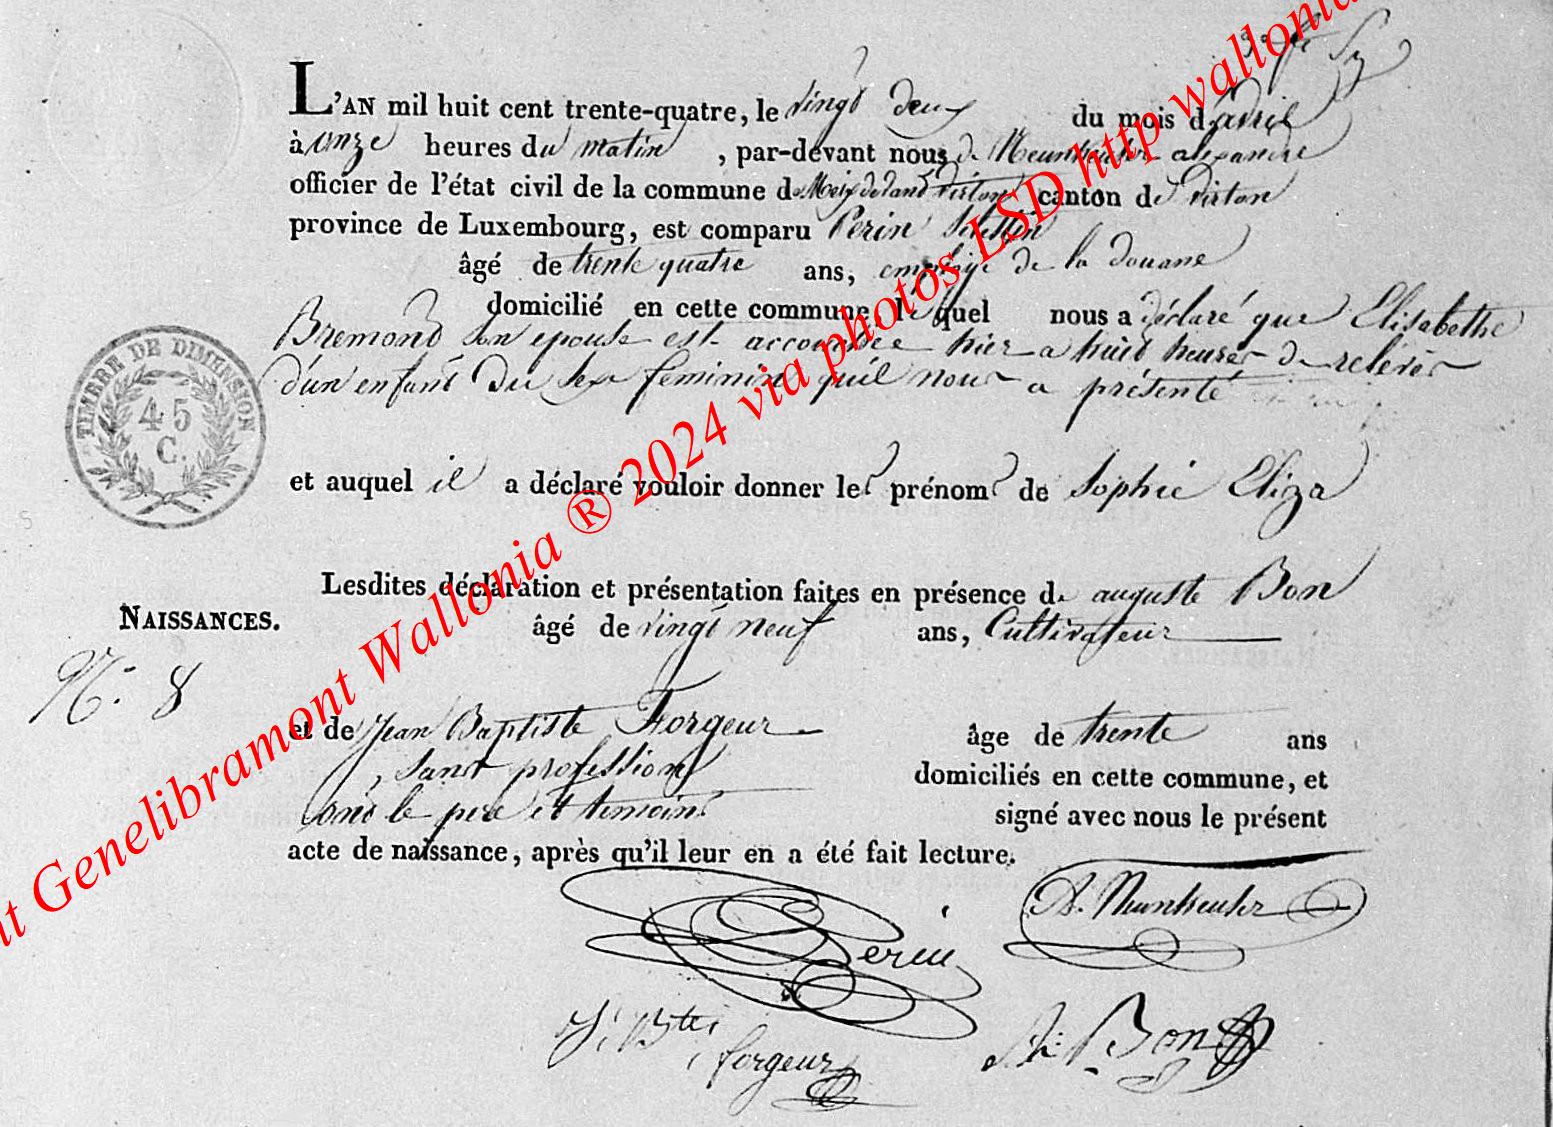 L'AN mil huit cent trente-quatre, le vingt deux du mois d'avril
à onze heures du matin, par-devant nous de Meunheuser alexandre
officier de l'état civil de la commune de Meix devant virton canton de virton
province de Luxembourg, est comparu Perin
âgé de trente quatre ans, employé de la douane
domicilié en cette commune, lequel nous a déclaré que Elisabethe
Bremond son epouse est accouchée hier a huit heures de relevés
d'un enfant du sexe feminin qu'il nous a présenté
TIMBRE DE DIMENSION
45
C.
et auquel il a déclaré vouloir donner les prénoms de Sophie Eliza
Lesdites déclaration et présentation faites en présence de auguste Bon
NAISSANCES.
âgé de vingt neuf ans, Cultivateur
N.° 8
et de Jean Baptiste Forgeur âge de trente ans
, sans profession domiciliés en cette commune, et
ont le pere et temoins signé avec nous le présent
acte de naissance, après qu'il leur en a été fait lecture.
A. Meunheuser
Perin
J. Bte forgeur
Bon
Genelibramont Wallonia ® 2024 via photos LSD http wallonia